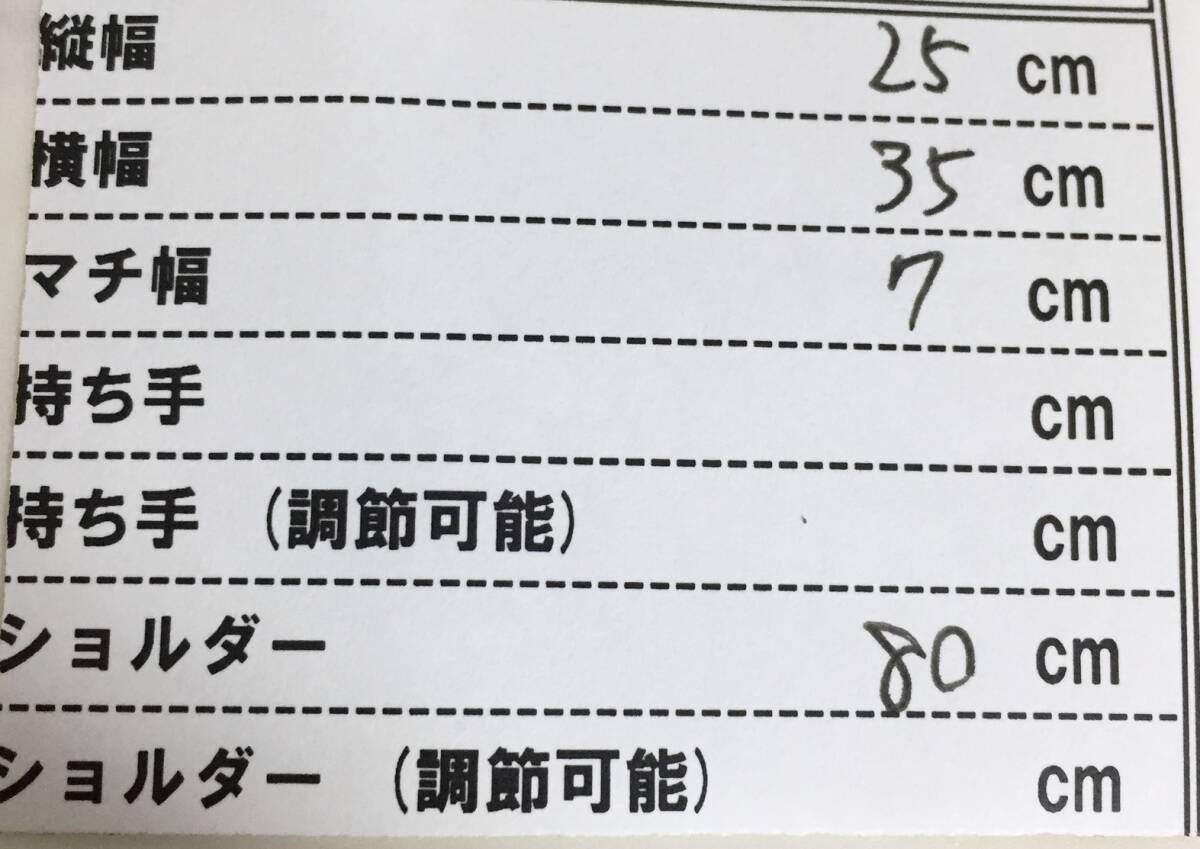 縦幅 25 cm
横幅 35 cm
マチ幅 7 cm
持ち手 cm
持ち手 (調節可能) cm
ショルダー 80 cm
ショルダー (調節可能) cm